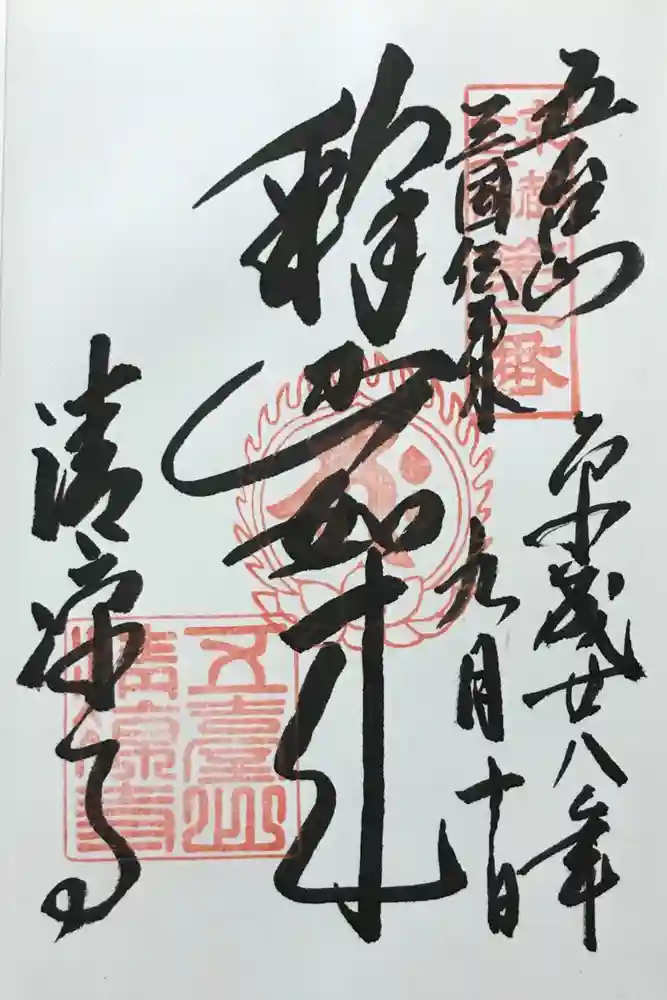 五台山
平成廿八年
三国伝来
九月十日
釋迦如来
清凉寺
第二番
五臺山
清凉寺